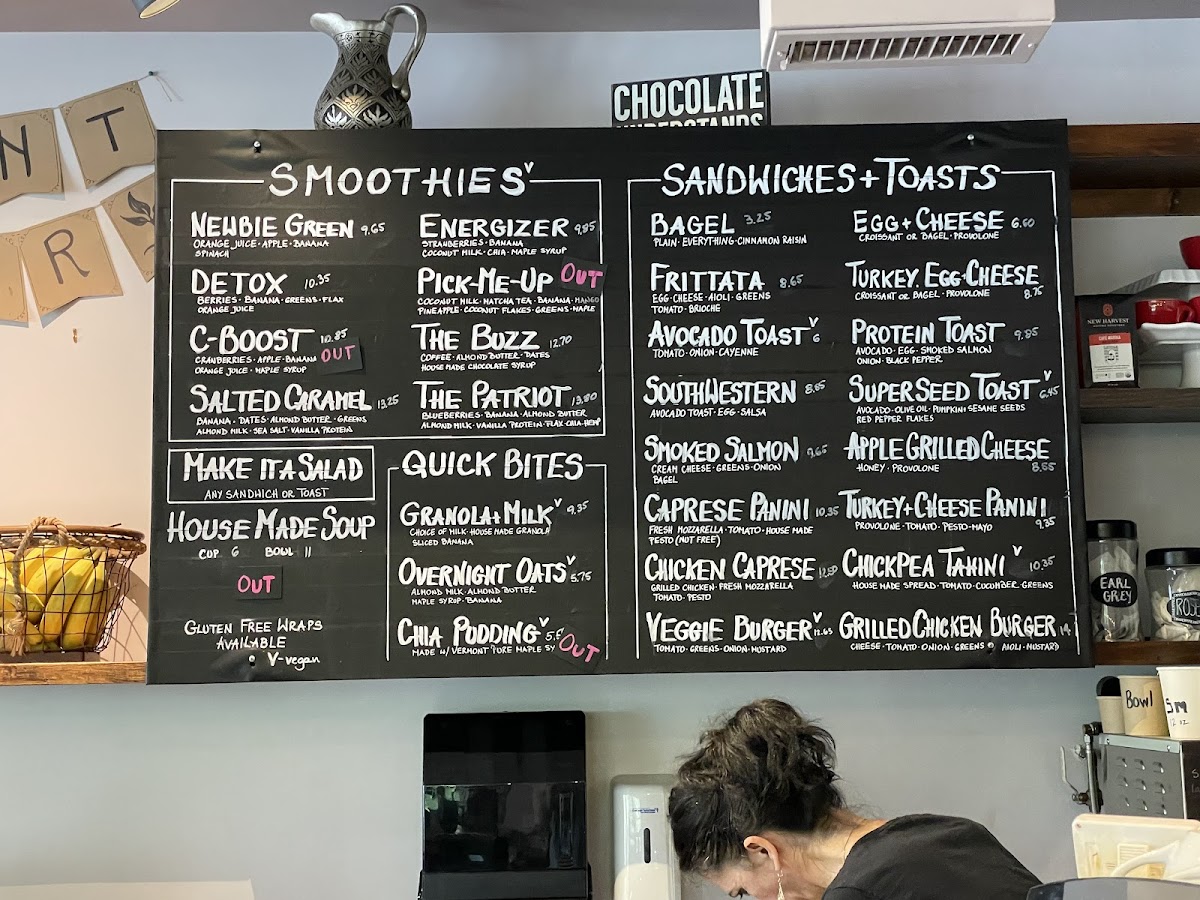 N T
R
CHOCOLATE
UNDERSTANDS
SMOOTHIES V
NEWBIE GREEN 9.65
ORANGE JUICE · APPLE · BANANA
SPINACH
DETOX 10.35
BERRIES · BANANA · GREENS · FLAX
ORANGE JUICE
C-BOOST 10.85
CRANBERRIES · APPLE · BANANA OUT
ORANGE JUICE · MAPLE SYRUP
SALTED CARAMEL 13.25
BANANA · DATES · ALMOND BUTTER · GREENS
ALMOND MILK · SEA SALT · VANILLA PROTEIN
ENERGIZER 9.85
STRAWBERRIES · BANANA
COCONUT MILK · CHIA · MAPLE SYRUP
PICK-ME-UP OUT
COCONUT MILK · MATCHA TEA · BANANA · MANGO
PINEAPPLE · COCONUT FLAKES · GREENS · MAPLE
THE BUZZ 12.70
COFFEE · ALMOND BUTTER · DATES
HOUSE MADE CHOCOLATE SYRUP
THE PATRIOT 13.80
BLUEBERRIES · BANANA · ALMOND BUTTER
ALMOND MILK · VANILLA PROTEIN · FLAX · CHIA · HEMP
MAKE IT A SALAD
ANY SANDWICH OR TOAST
HOUSE MADE SOUP
CUP 6 BOWL 11
OUT
GLUTEN FREE WRAPS
AVAILABLE
V-vegan
QUICK BITES
GRANOLA + MILK V 9.35
CHOICE OF MILK · HOUSE MADE GRANOLA
SLICED BANANA
OVERNIGHT OATS V 5.75
ALMOND MILK · ALMOND BUTTER
MAPLE SYRUP · BANANA
CHIA PUDDING V OUT
MADE W/ VERMONT PURE MAPLE SY
SANDWICHES + TOASTS
BAGEL 3.25
PLAIN · EVERYTHING · CINNAMON RAISIN
FRITTATA 8.65
EGG · CHEESE · AIOLI · GREENS
TOMATO · BRIOCHE
AVOCADO TOAST V 6
TOMATO · ONION · CAYENNE
SOUTHWESTERN 8.85
AVOCADO TOAST · EGG · SALSA
SMOKED SALMON 9.65
CREAM CHEESE · GREENS · ONION
BAGEL
CAPRESE PANINI 10.35
FRESH MOZZARELLA · TOMATO · HOUSE MADE
PESTO (NUT FREE)
CHICKEN CAPRESE 12.50
GRILLED CHICKEN · FRESH MOZZARELLA
TOMATO · PESTO
VEGGIE BURGER V 12.65
TOMATO · GREENS · ONION · MUSTARD
EGG + CHEESE 6.60
CROISSANT OR BAGEL · PROVOLONE
TURKEY. EGG + CHEESE
CROISSANT OR BAGEL · PROVOLONE 8.75
PROTEIN TOAST 9.85
AVOCADO · EGG · SMOKED SALMON
ONION · BLACK PEPPER
SUPER SEED TOAST V 6.45
AVOCADO · OLIVE OIL · PUMPKIN & SESAME SEEDS
RED PEPPER FLAKES
APPLE GRILLED CHEESE
HONEY · PROVOLONE 8.55
TURKEY + CHEESE PANINI
PROVOLONE · TOMATO · PESTO-MAYO 9.35
CHICKPEA TAHINI V 10.35
HOUSE MADE SPREAD · TOMATO · CUCUMBER · GREENS
GRILLED CHICKEN BURGER 14
CHEESE · TOMATO · ONION · GREENS · AIOLI · MUSTARD
NEW HARVEST
EARL
GREY
ROSE
Bowl
SM
12 oz